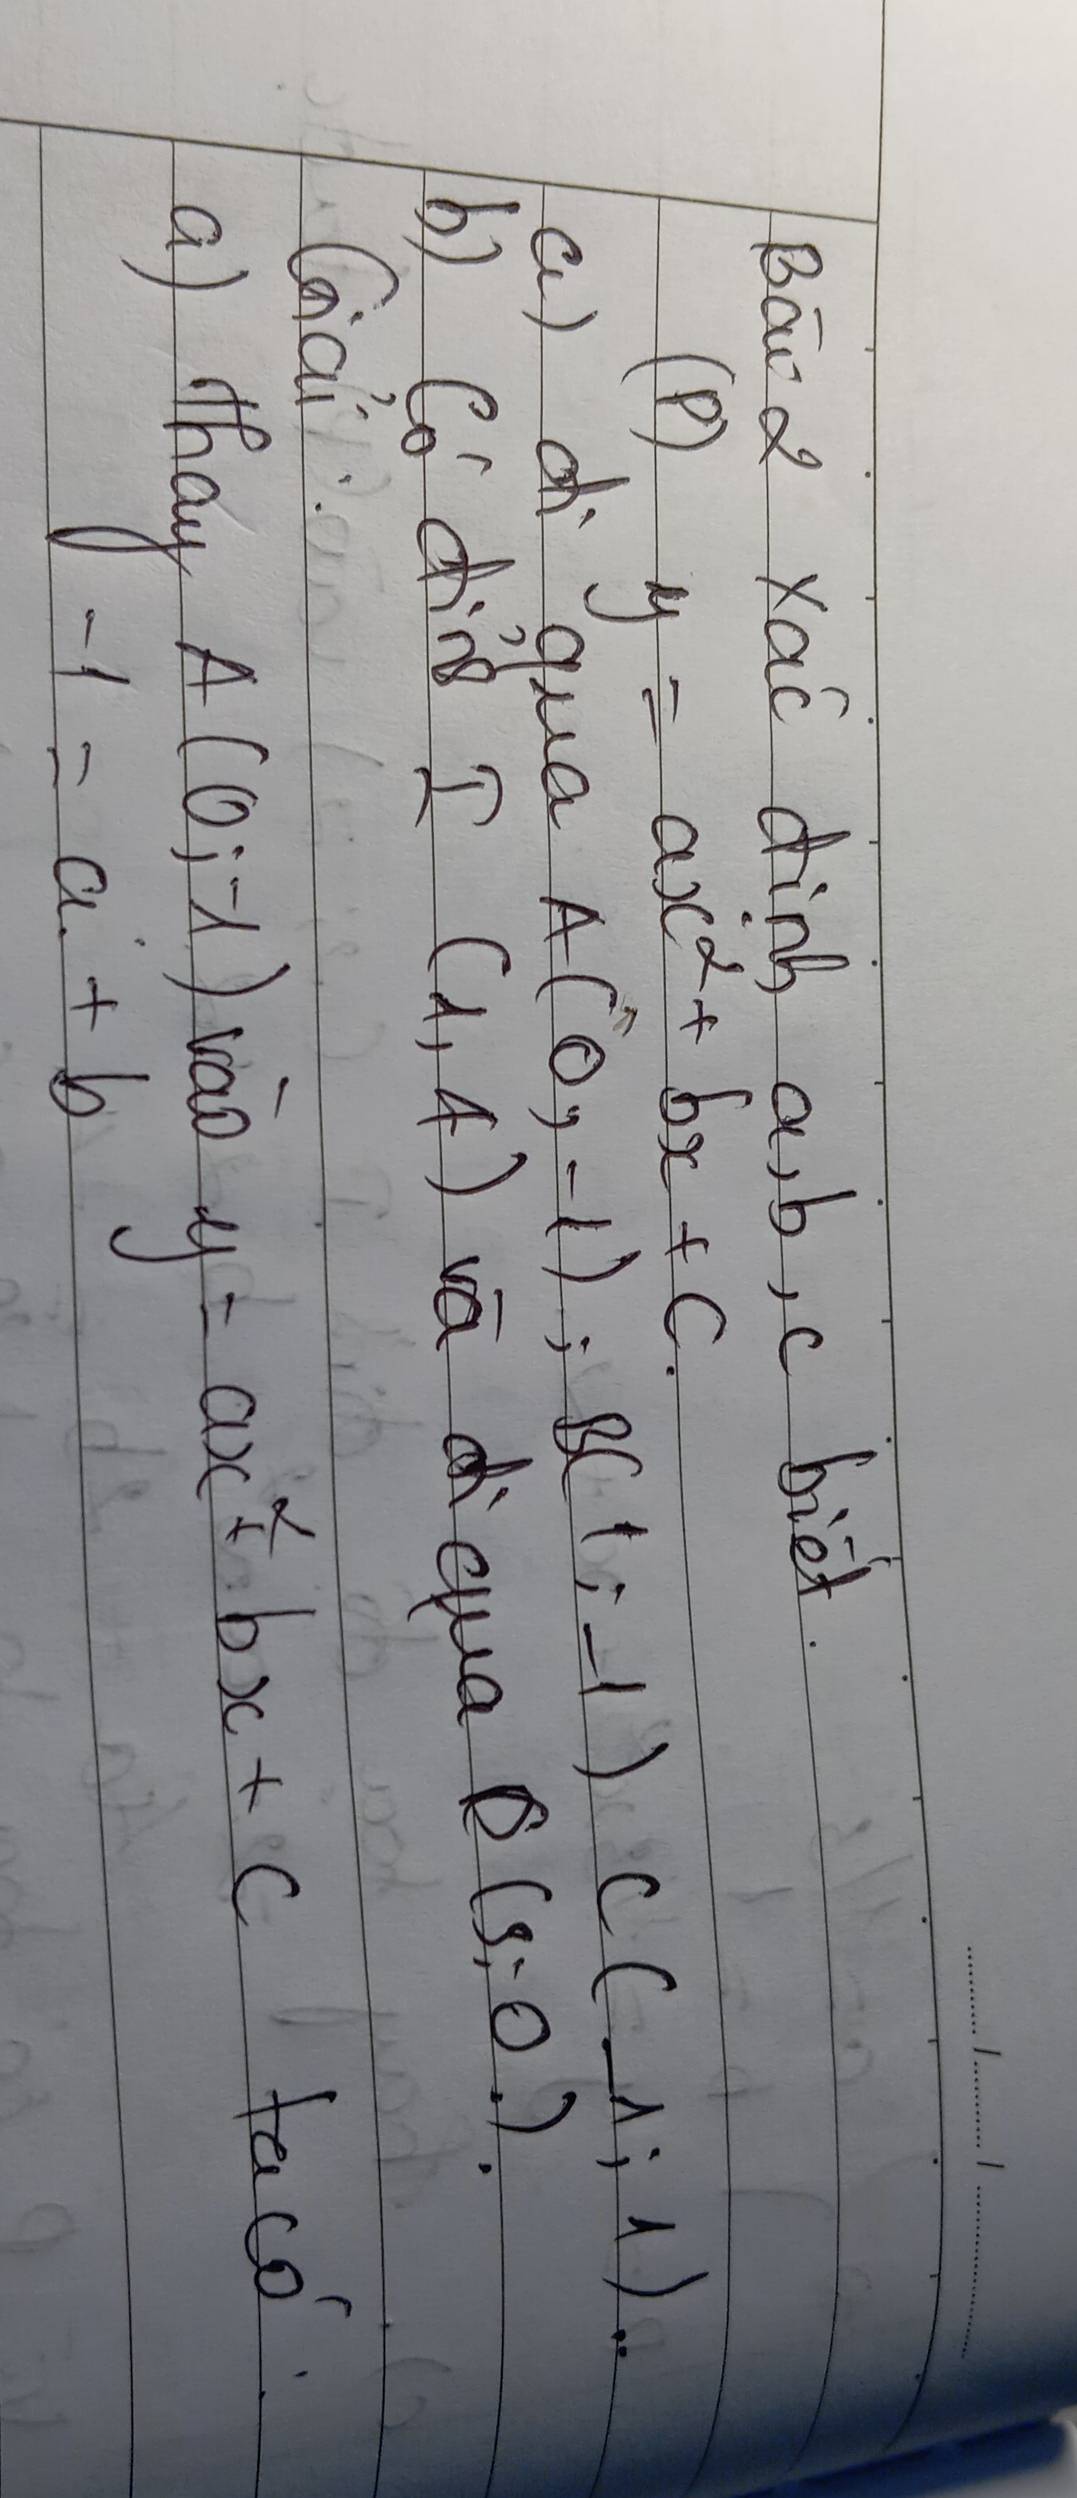 Bài 2 Xác định a, b, c biết.
(P) y = ax² + bx + C.
a) đi qua A(0; -1); B(1; -1) C(-1; 1)..
b) Có đỉnh I (1, 4) và đi qua D(3; 0.).
Giải:
a) Thay A(0; -1) vào y = ax² + bx + C ta có
-1 = a. + b